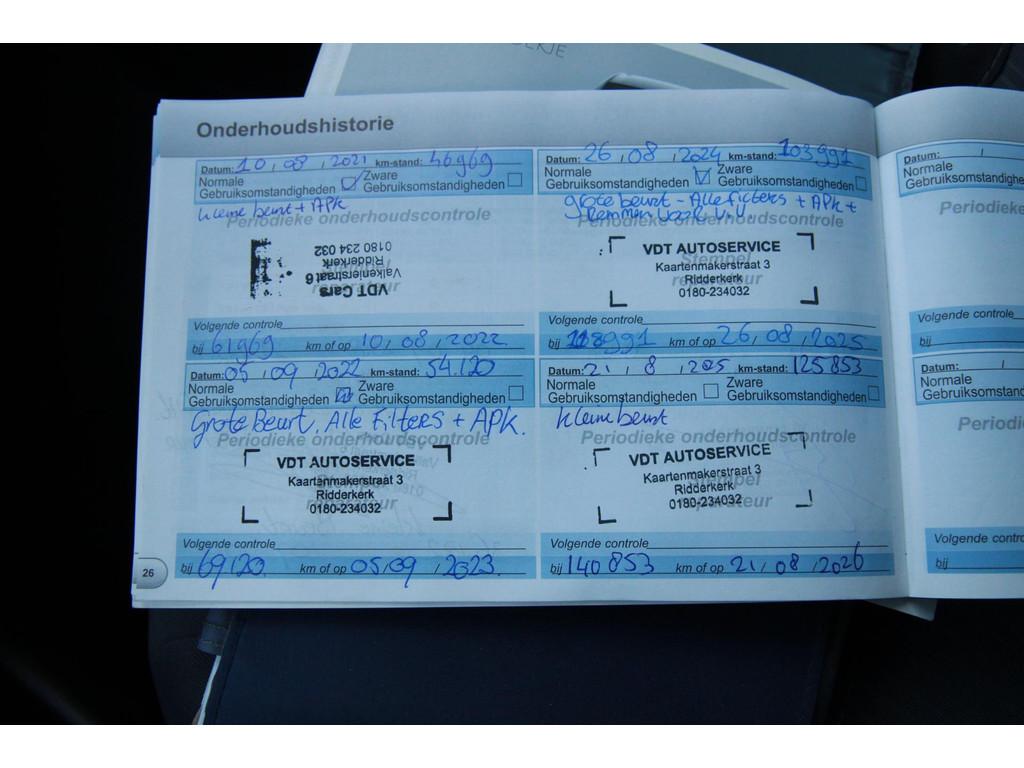 EKJE
Onderhoudshistorie
Datum: 10 , 08 , 2021 km-stand: 46969
Normale Gebruiksomstandigheden Zware Gebruiksomstandigheden
kleine beurt + APK
Periodieke onderhoudscontrole
VDT Cars
Valkenierstraat 6
Ridderkerk
0180 234 032
Volgende controle
bij 61969 km of op 10 , 08 , 2022
Datum: 05 , 09 , 2022 km-stand: 54.120
Normale Gebruiksomstandigheden Zware Gebruiksomstandigheden
Grote Beurt, Alle Filters + APK.
Periodieke onderhoudscontrole
VDT AUTOSERVICE
Kaartenmakerstraat 3
Ridderkerk
0180-234032
Volgende controle
bij 69120. km of op 05,09 , 2023.
26
Datum: 26 , 08 , 2024 km-stand: 103991
Normale Gebruiksomstandigheden Zware Gebruiksomstandigheden
grote beurt - Alle filters + APK +
Remmen voor v.v.
Periodieke onderhoudscontrole
Stempel
VDT AUTOSERVICE
Kaartenmakerstraat 3
Ridderkerk
0180-234032
Volgende controle
bij 118991 km of op 26 , 08 , 2025
Datum: 21 , 8 , 205 km-stand: 125 853
Normale Gebruiksomstandigheden Zware Gebruiksomstandigheden
kleine beurt
Periodieke onderhoudscontrole
Stempel
VDT AUTOSERVICE
Kaartenmakerstraat 3
Ridderkerk
0180-234032
Volgende controle
bij 140 853 km of op 21 , 08 , 2026
Datum: /
Normale
Gebruiksomstandigheden
Periodieke
Volgende controle
bij
Datum: /
Normale
Gebruiksomstandigheden
Periodi
Volgende contro
bij